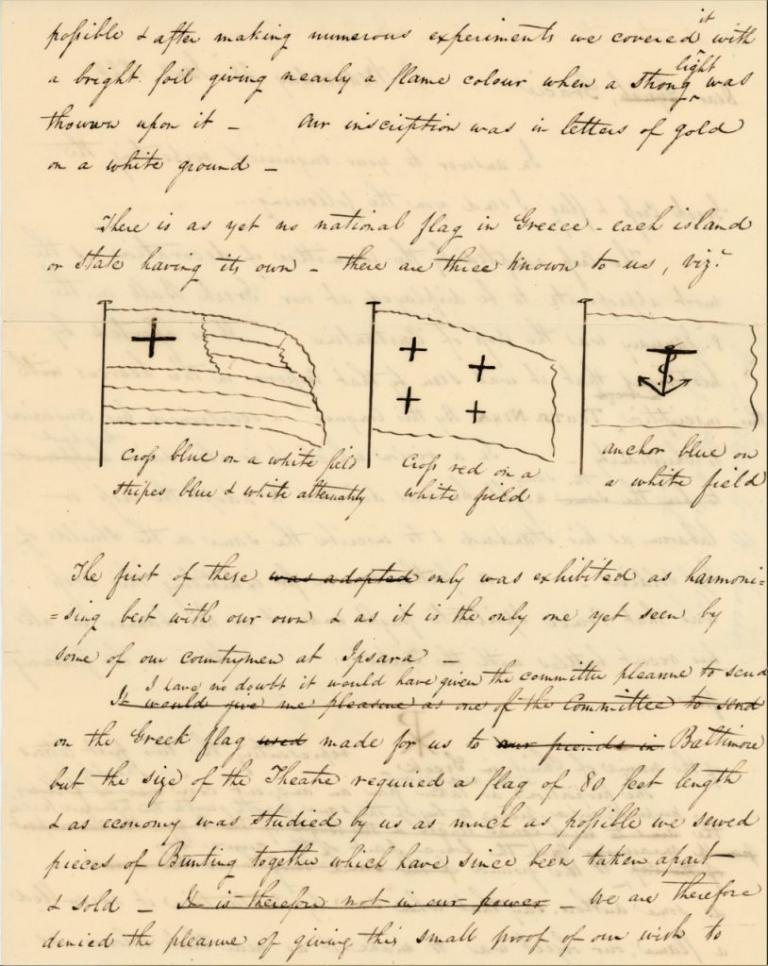 possible & after making numerous experiments we covered it with
a bright foil giving nearly a flame colour when a strong light was
thrown upon it – Our inscription was in letters of gold
on a white ground –
There is as yet no national flag in Greece – each island
or State having its own – there are three known to us, viz.
cross blue on a white field
stripes blue & white alternately
cross red on a
white field
anchor blue on
a white field
The first of these was adopted only was exhibited as harmoni=
=sing best with our own & as it is the only one yet seen by
some of our countrymen at Ipsara –
I have no doubt it would have given the committee pleasure to send
It would give me pleasure as one of the Committee to send
on the Greek flag used made for us to our friends in Baltimore
but the size of the Theatre required a flag of 80 feet length
& as economy was studied by us as much as possible we sewed
pieces of Bunting together which have since been taken apart
& sold – It is therefore not in our power – We are therefore
denied the pleasure of giving this small proof of our wish to